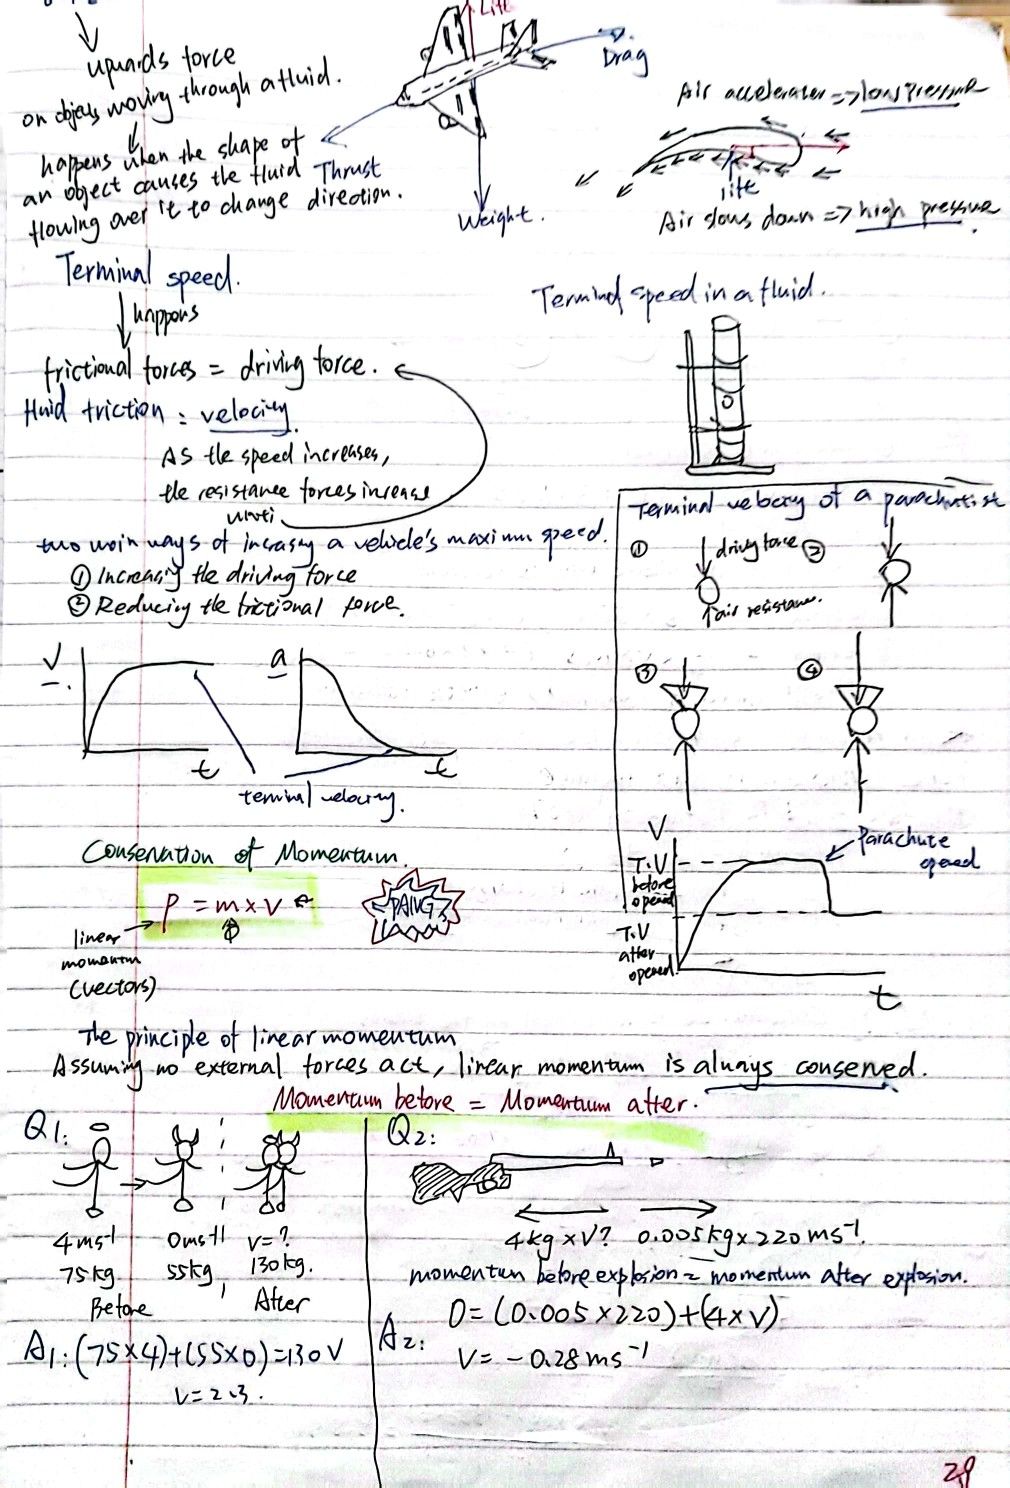 Lift
upwards force
on objects moving through a fluid.
Drag
happens when the shape of
an object causes the fluid
flowing over it to change direction.
Thrust
Weight.
Air accelerates => low pressure
lift
Air slows down => high pressure
Terminal speed.
happens
frictional forces = driving force.
Fluid friction : velocity.
As the speed increases,
the resistance forces increase
until
two main ways of increasing a vehicle's maximum speed.
① Increasing the driving force
② Reducing the frictional force.
V
t
a
t
terminal velocity.
Terminal speed in a fluid.
Terminal velocity of a parachutist
① driving force
air resistance.
②
③
④
V
T.V
before
opened
T.V
after
opened
Parachute
opened
t
Conservation of Momentum.
P = m × v
PANG
linear
momentum
(vectors)
The principle of linear momentum
Assuming no external forces act, linear momentum is always conserved.
Momentum before = Momentum after.
Q1:
4ms-1
75kg
0ms-1
55kg
Before
V=?
130kg.
After
A1: (75×4)+(55×0)=130V
V=2.3.
Q2:
4kg×V? 0.005kg×220ms-1.
momentum before explosion = momentum after explosion.
A2:
0=(0.005×220)+(4×V)
V= -0.28ms-1
29